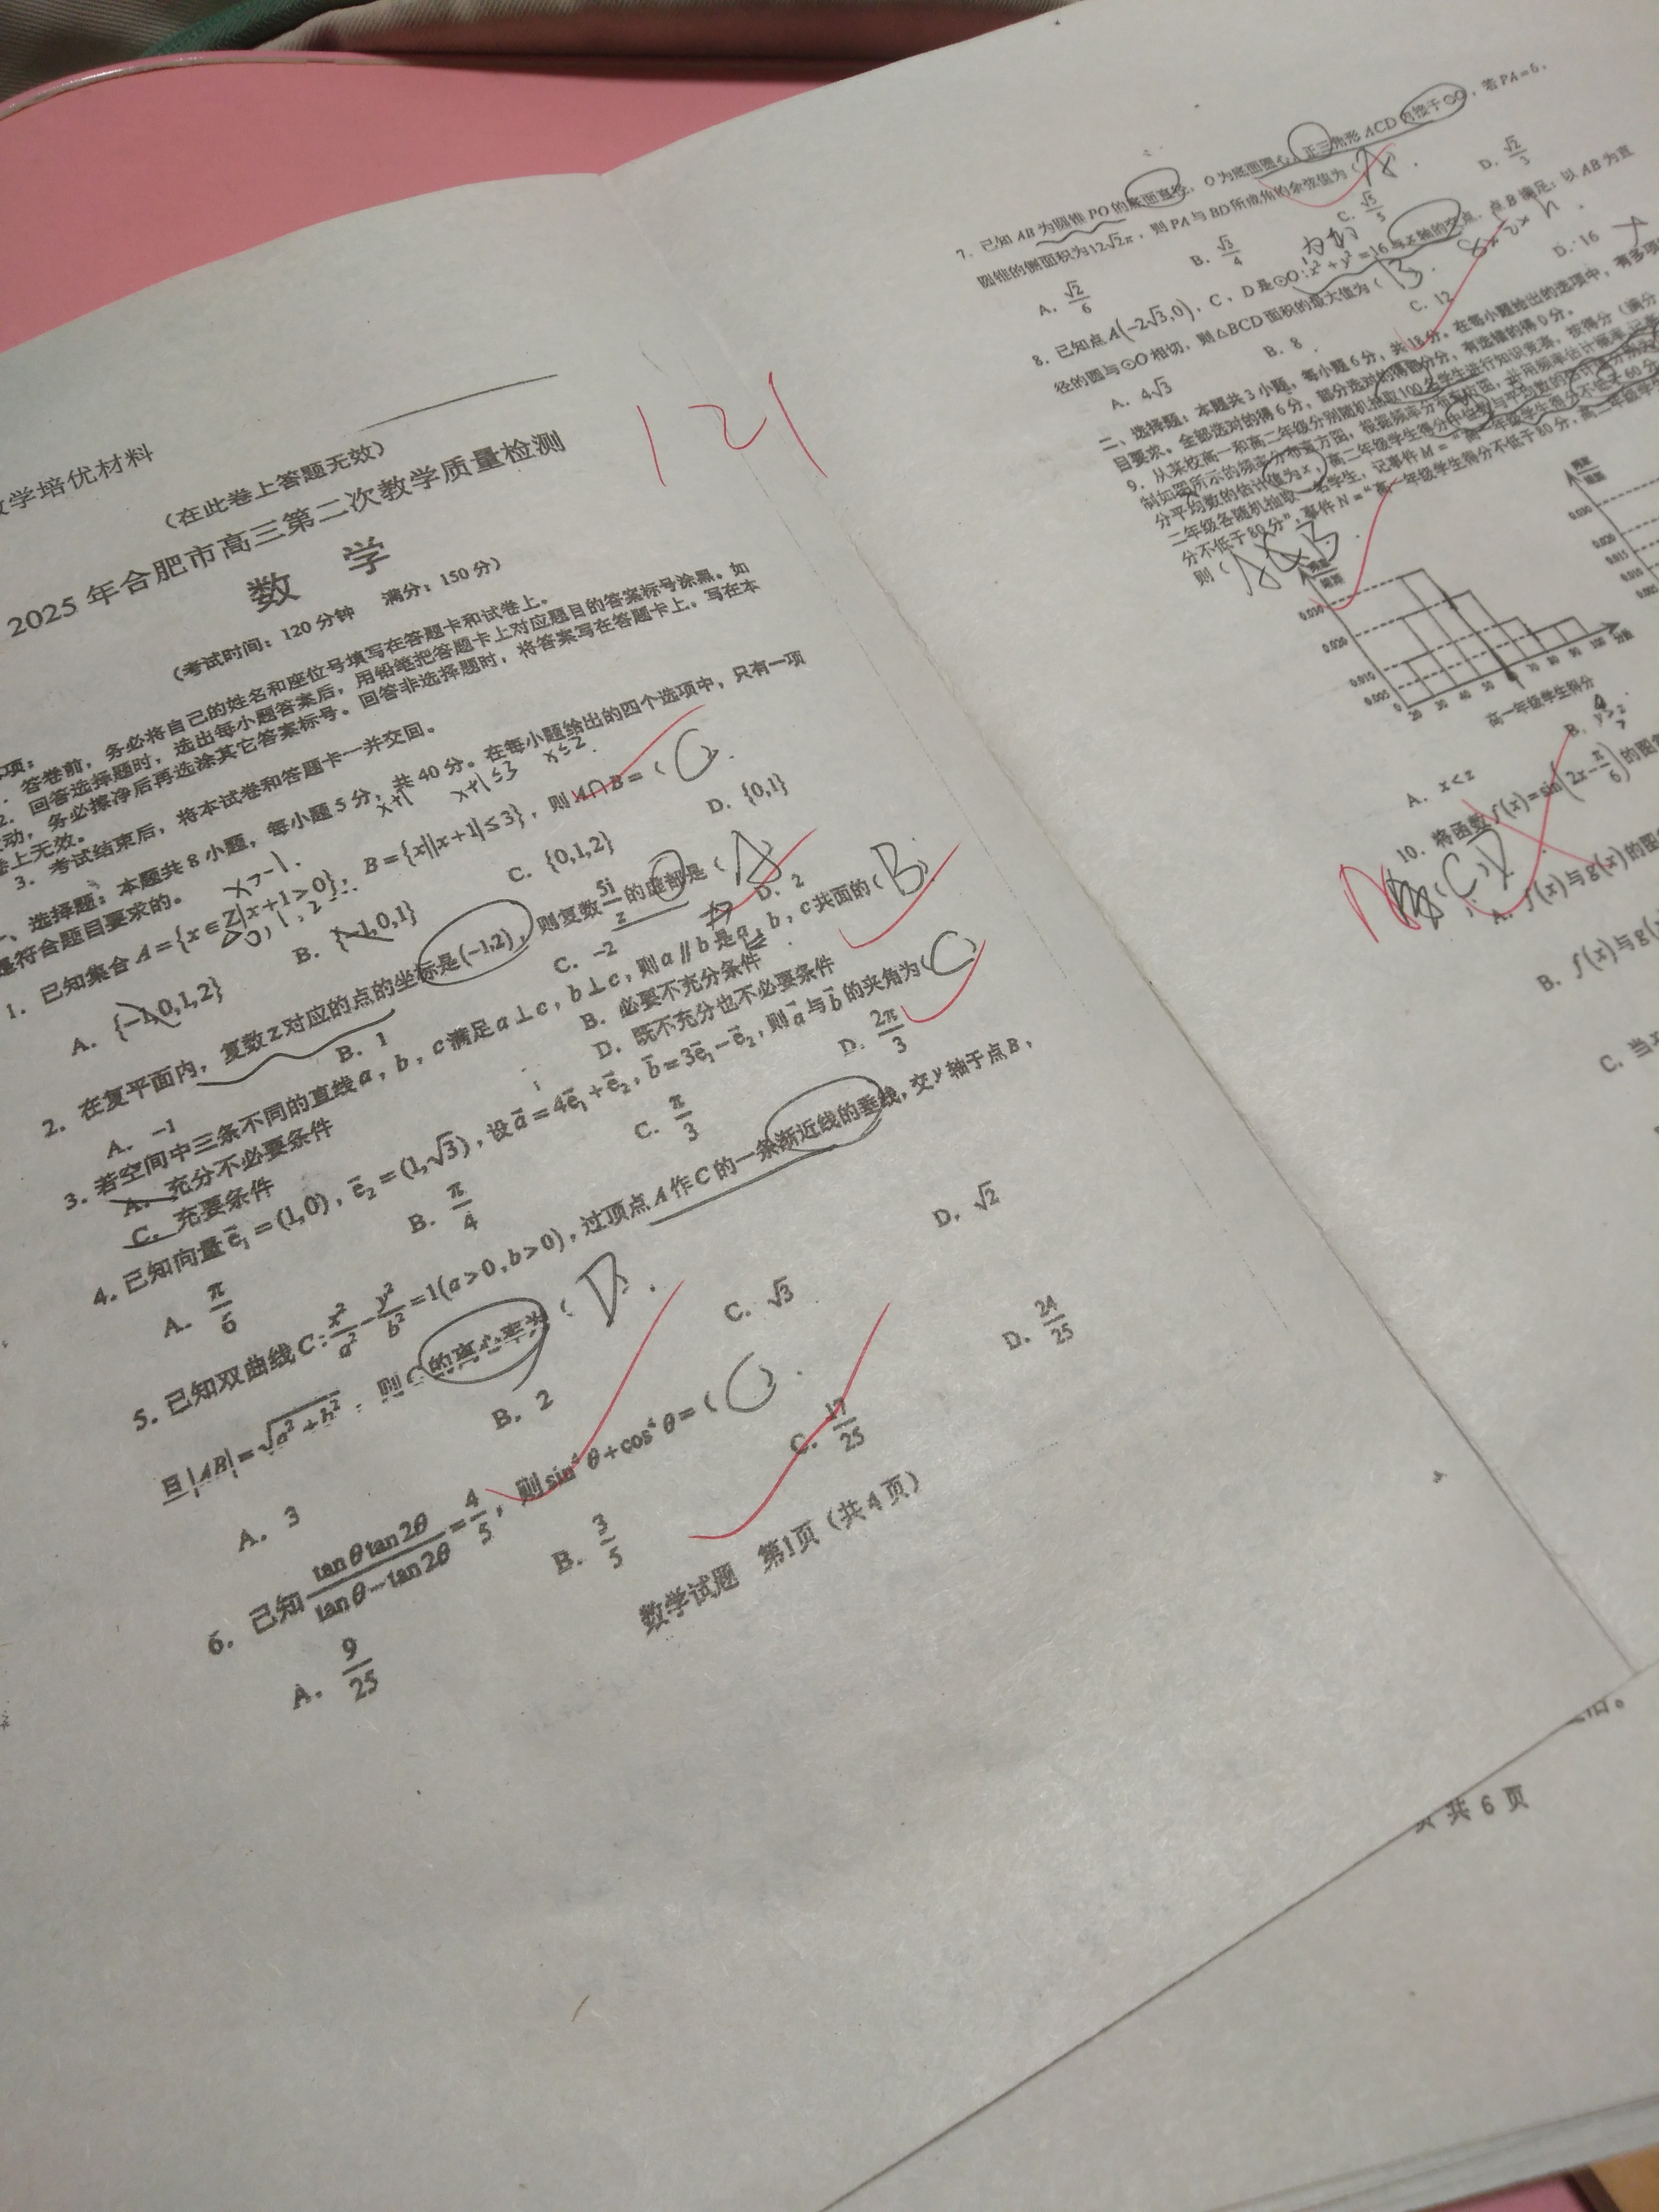 学培优材料
（在此卷上答题无效）
2025年合肥市高三第二次教学质量检测
数 学
（考试时间：120分钟 满分：150分）
项：
答卷前，务必将自己的姓名和座位号填写在答题卡和试卷上。
回答选择题时，选出每小题答案后，用铅笔把答题卡上对应题目的答案标号涂黑。如
动，务必擦净后再选涂其它答案标号。回答非选择题时，将答案写在答题卡上。写在本
卷上无效。
3. 考试结束后，将本试卷和答题卡一并交回。
、选择题：本题共8小题，每小题5分，共40分。在每小题给出的四个选项中，只有一项
是符合题目要求的。
x>-1.
x+1
x+1≤3
x≤2.
1. 已知集合A={x∈Z|x+1>0}，B={x||x+1|≤3}，则A∩B=（C）
0,1,2
A. {-1,0,1,2} B. {-1,0,1} C. {0,1,2} D. {0,1}
2. 在复平面内，复数z对应的点的坐标是(-1,2)，则复数5i/z的虚部是（A）
A. -1 B. 1 C. -2 D. 2
3. 若空间中三条不同的直线a，b，c满足a⊥c，b⊥c，则a∥b是a，b，c共面的（B）
A. 充分不必要条件 B. 必要不充分条件
C. 充要条件 D. 既不充分也不必要条件
4. 已知向量e₁=(1,0)，e₂=(1,√3)，设a=4e₁+e₂，b=3e₁-e₂，则a与b的夹角为（C）
A. π/6 B. π/4 C. π/3 D. 2π/3
5. 已知双曲线C:x²/a²-y²/b²=1(a>0,b>0)，过顶点A作C的一条渐近线的垂线，交y轴于点B，
且|AB|=√(a²+b²)，则C的离心率为（D）.
A. 3 B. 2 C. √3 D. √2
6. 已知tanθtan2θ/(tanθ-tan2θ)=4/5，则sin⁴θ+cos⁴θ=（C）.
A. 9/25 B. 3/5 C. 17/25 D. 24/25
数学试题 第1页（共4页）
121
7. 已知AB为圆锥PO的底面直径，O为底面圆心，正三角形ACD内接于⊙O，若PA=6，
圆锥的侧面积为12√2π，则PA与BD所成角的余弦值为（A）.
A. √2/6 B. √3/4 C. √5/5 D. √2/3
8. 已知点A(-2√3,0)，C，D是⊙O:x²+y²=16与x轴的交点，点B满足：以AB为直
径的圆与⊙O相切，则△BCD面积的最大值为（B.
A. 4√3 B. 8 C. 12 D. 16
二、选择题：本题共3小题，每小题6分，共18分。在每小题给出的选项中，有多项
目要求。全部选对的得6分，部分选对的得部分分，有选错的得0分。
9. 从某校高一和高二年级分别随机抽取100名学生进行知识竞赛，按得分（满分
制如图所示的频率分布直方图，根据频率分布直方图，并用频率估计概率
分平均数的估计值为x，高二年级学生得分中位数与平均数的估计
二年级各随机抽取一名学生，记事件M="高一年级学生得分不低于60分
分不低于80分"，事件N="高一年级学生得分不低于80分，高二年级学
则（
频率
组距
0.030
0.020
0.010
0.005
0 20 30 40 50 70 80 90 100 分数
高一年级学生得分
频率
组距
0.030
0.020
0.015
0.010
0.005
A. x<z
B. y>z
10. 将函数f(x)=sin(2x-π/6)的图
A. f(x)与g(x)的图
B. f(x)与g(x
C. 当x
共 6 页